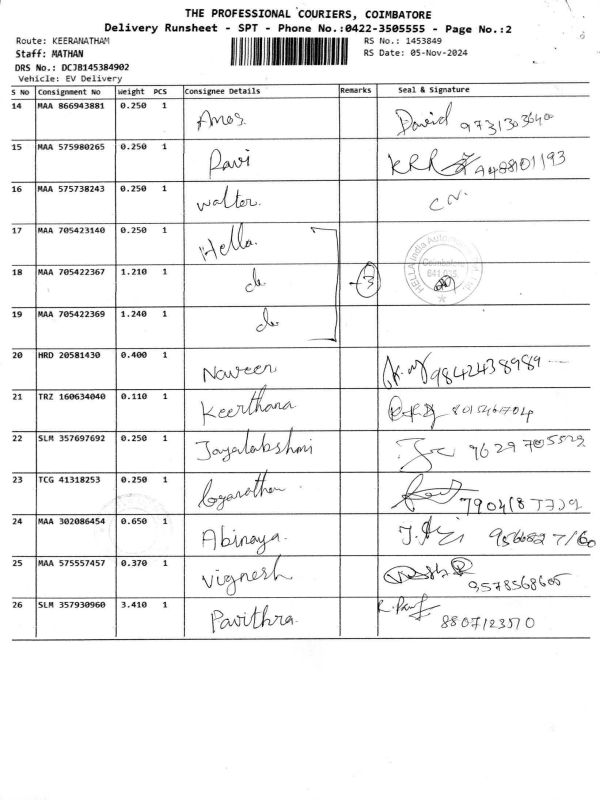 THE PROFESSIONAL COURIERS, COIMBATORE
Delivery Runsheet - SPT - Phone No.:0422-3505555 - Page No.:2
Route: KEERANATHAM
RS No.: 1453849
Staff: MATHAN
RS Date: 05-Nov-2024
DRS No.: DCJB145384902
Vehicle: EV Delivery
S No Consignment No Weight PCS Consignee Details Remarks Seal & Signature
14 MAA 866943881 0.250 1 Amos David 9731303640
15 MAA 575980265 0.250 1 Ravi KRR 9488101193
16 MAA 575738243 0.250 1 Walter. C.N.
17 MAA 705423140 0.250 1 Hella.
18 MAA 705422367 1.210 1 do -3 HELLA India Automotive Coimbatore
19 MAA 705422369 1.240 1 do
20 HRD 20581430 0.400 1 Naveen 9842438989
21 TRZ 160634040 0.110 1 Keerthana 8015461704
22 SLM 357697692 0.250 1 Jayalakshmi 9629705529
23 TCG 41318253 0.250 1
24 MAA 302086454 0.650 1 Abinaya.
25 MAA 575557457 0.370 1 Vignesh 9578568605
26 SLM 357930960 3.410 1 Pavithra. 8807123510